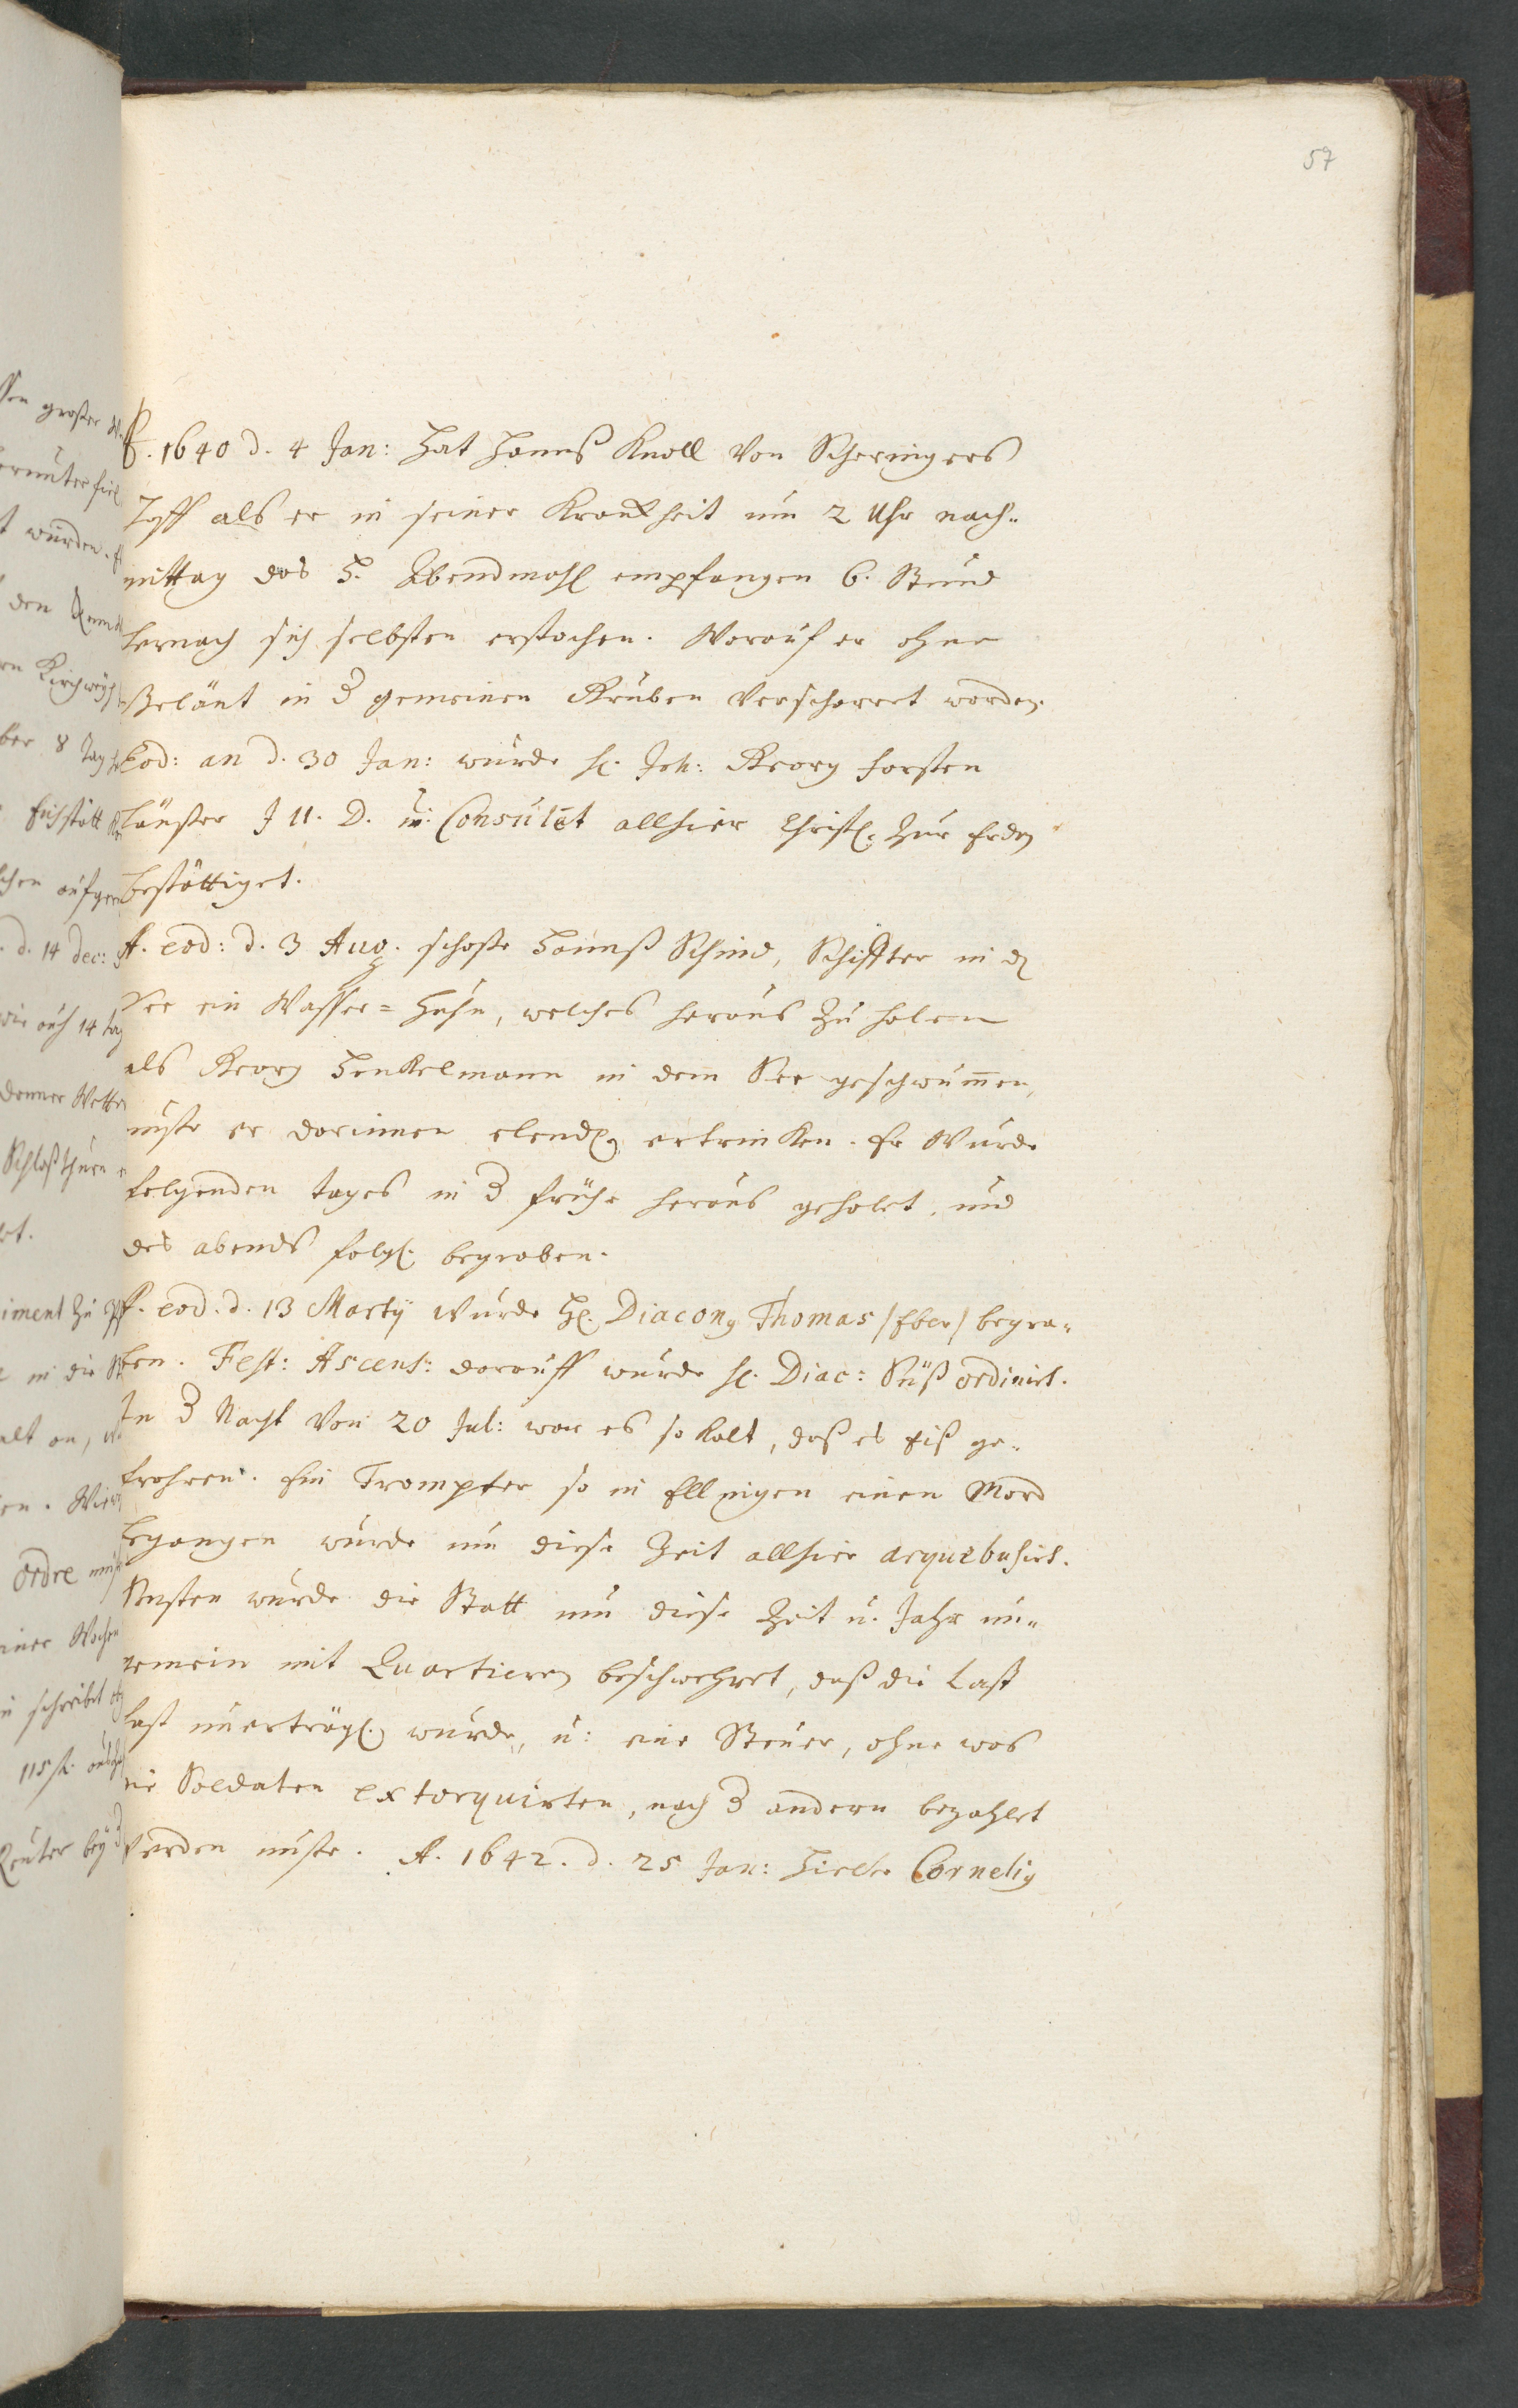 57
A. 1640 d. 4 Jan: Hat Hannß Knoll von Scheringers
Hoff als er in seiner Kranckheit um 2 Uhr nach-
mittag das H. Abendmahl empfangen 6. Stund
hernach sich selbsten erstochen. Worauf er ohne
Geläut in d gemeinen Gruben verscharret worden.
Eod: an d. 30 Jan: wurde H. Joh: Georg Forsten
häußer J U. D. u: Consulet allhier Christl. zur Erden
bestättiget.
A. eod: d. 3 Aug. schoße Hannß Schmid, Schiffter in d
See ein Wasser= Huhn, welches heraus zu holen
als Georg Henkelmann in dem See geschwummen,
muste er darinnen elendig ertrinken. Er wurde
folgenden tages in d frühe heraus geholet, und
des abends folgl. begraben.
A. eod. d. 13 Martij wurde H. Diaconus Thomas /Eber/ begra-
ben. Fest: Ascens: darauff wurde H. Diac: Süß ordinirt.
In d Nacht von 20 Jul: war es so kalt, daß es Eiß ge-
frohren. Ein Trompter so in Ellingen einen Mord
begangen wurde um diese Zeit allhier arquebusirt.
Sonsten wurde die Statt um diese Zeit u. Jahr un-
gemein mit Quartieren beschwehret, daß die Last
fast unerträgl. wurde, u: eine Steuer, ohne was
die Soldaten extorquirten, nach d andern bezahlet
werden muste. A. 1642. d. 25 Jan: hielte Cornelius